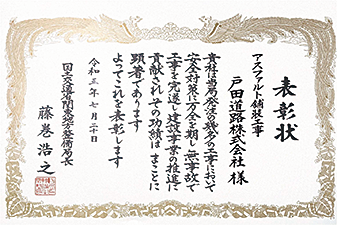 表彰状
アスファルト舗装工事
戸田道路株式会社 様
貴社は当局発注の幾多の工事において
安全対策に万全を期し無事故で
工事を完遂し建設事業の推進に
貢献されその功績はまことに
顕著であります
よってこれを表彰します
令和三年七月二十日
国土交通省関東地方整備局長
藤巻浩之